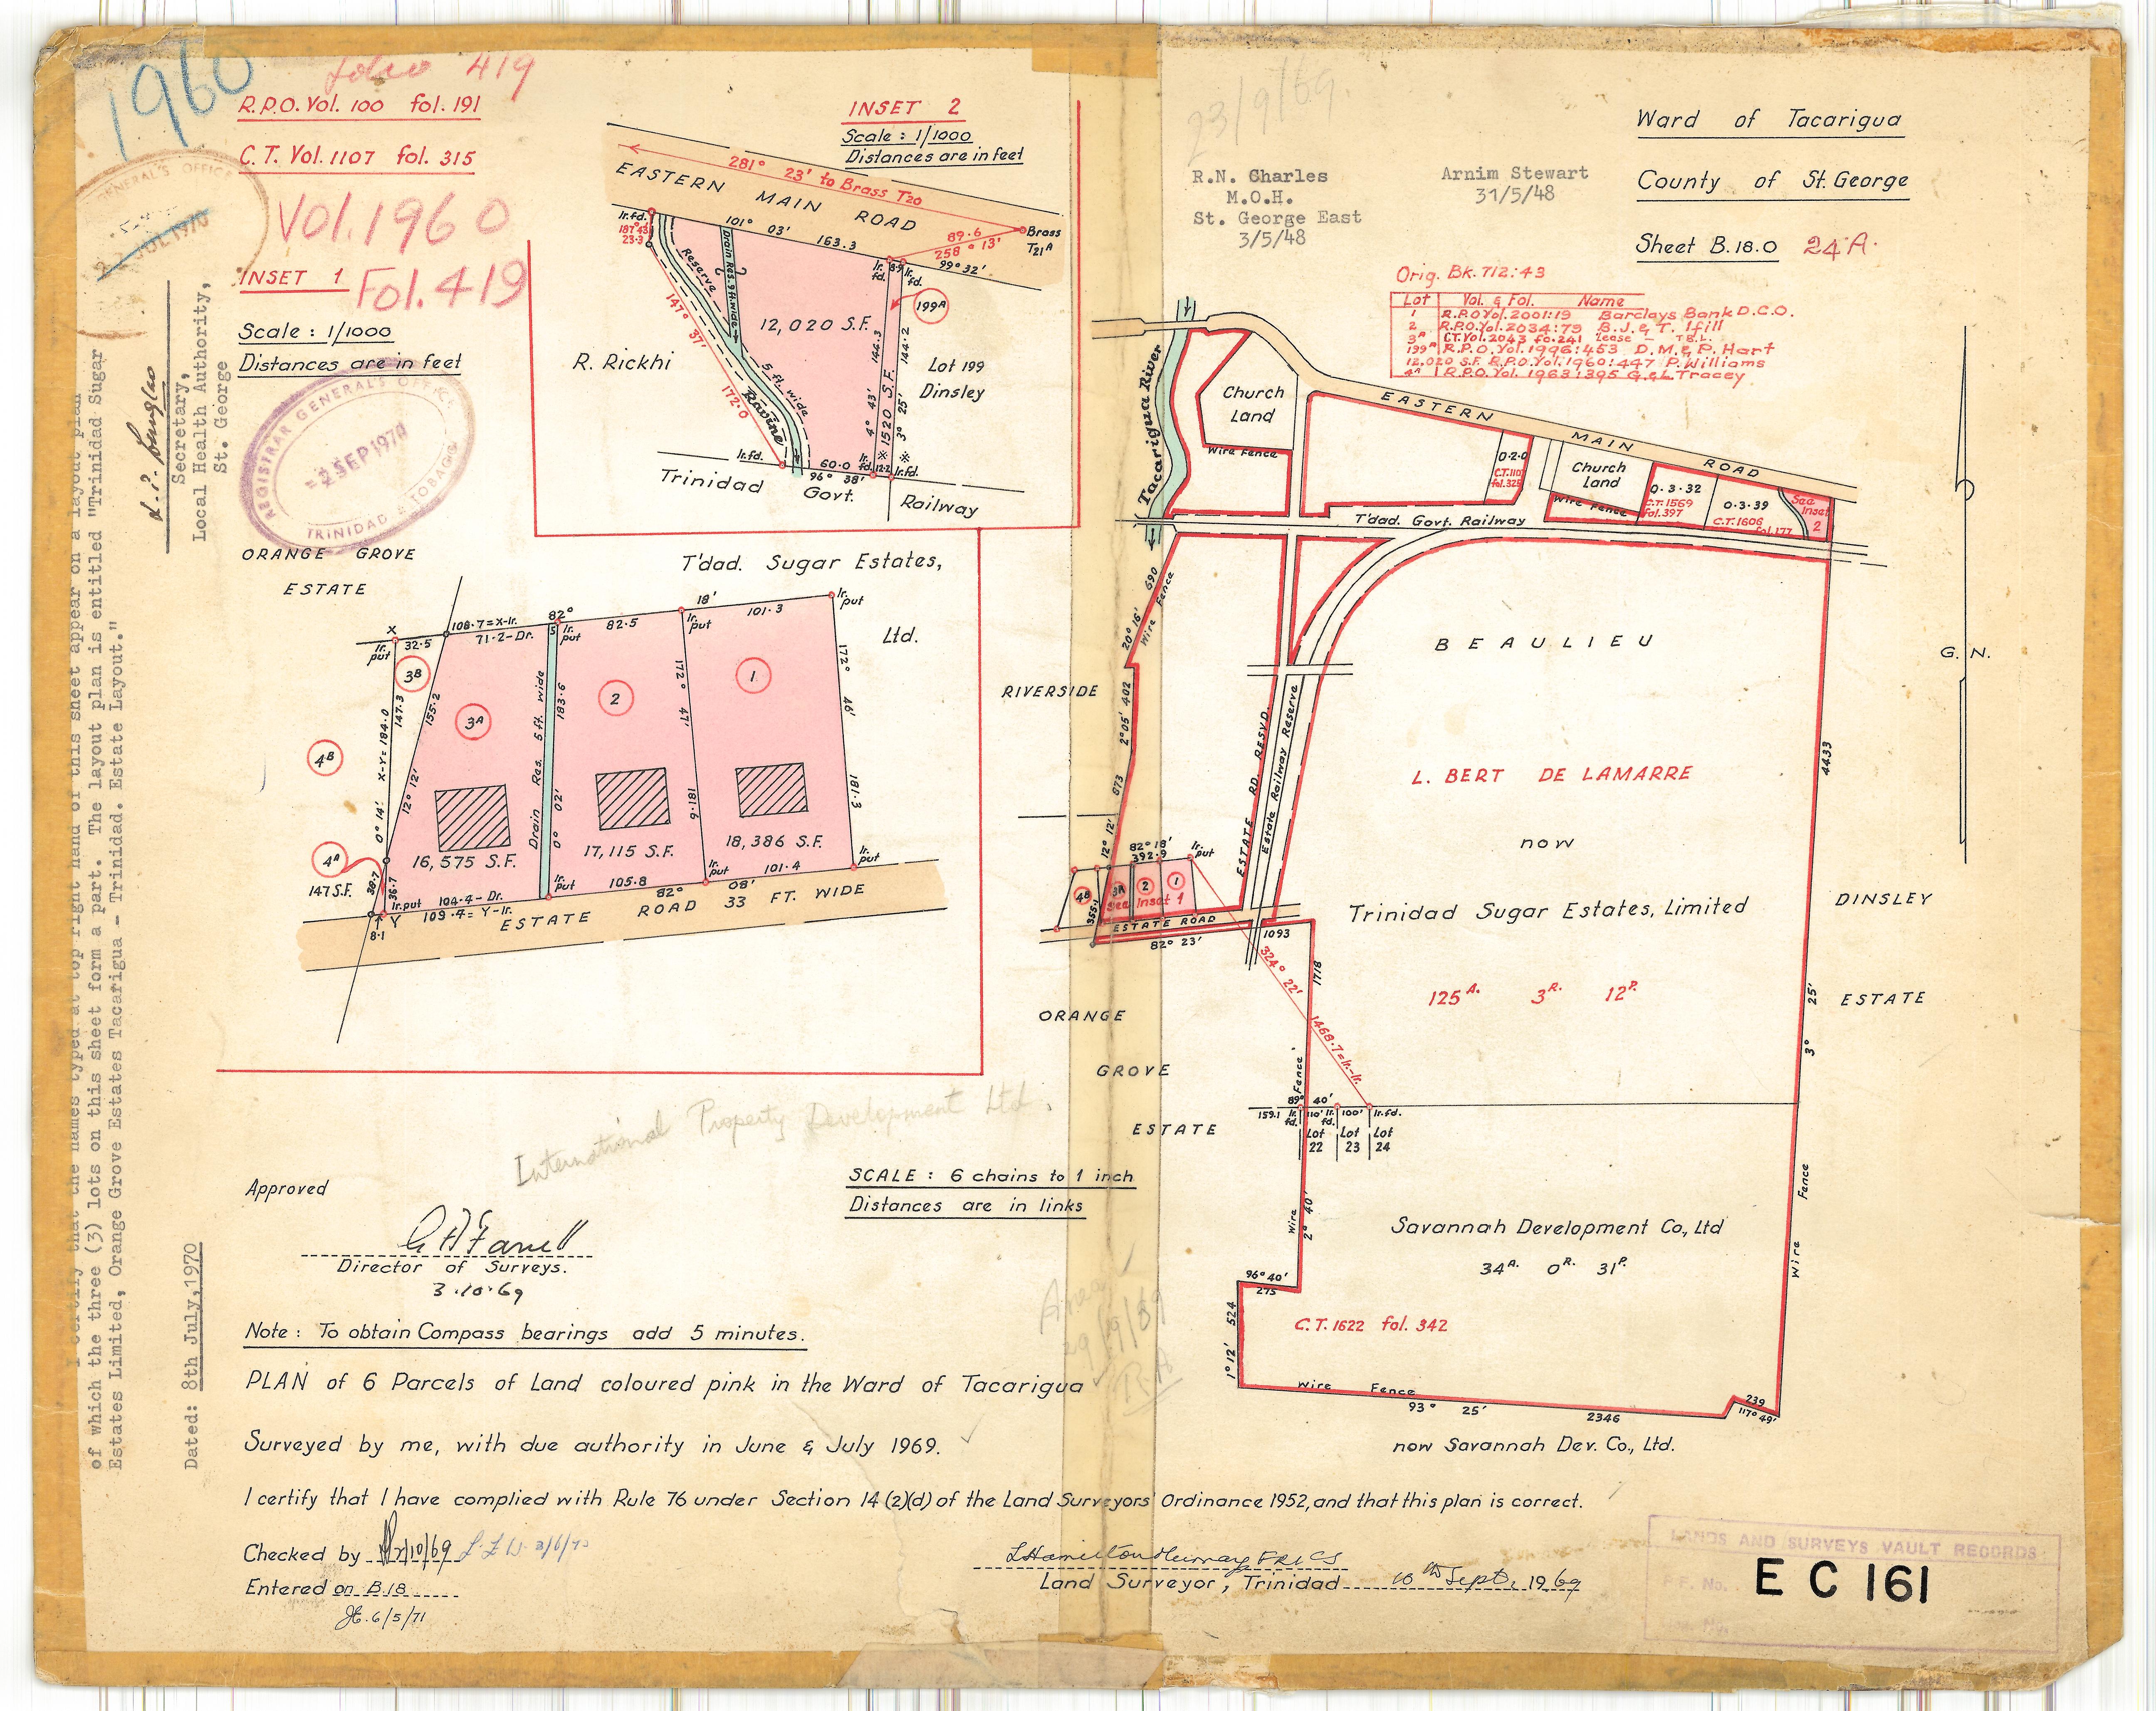 1960
Folio 419
R.P.O. Vol. 100 fol. 191
C.T. Vol. 1107 fol. 315
Vol. 1960
Fol. 419
GENERAL'S OFFICE
JUL 1970
INSET 1
Scale : 1/1000
Distances are in feet
REGISTRAR GENERAL'S OFFICE
2 SEP 1970
TRINIDAD & TOBAGO
Secretary,
Local Health Authority,
St. George
I certify that the names typed at top right hand of this sheet appear on a layout plan
of which the three (3) lots on this sheet form a part. The layout plan is entitled "Trinidad Sugar
Estates Limited, Orange Grove Estates Tacarigua - Trinidad. Estate Layout."
Dated: 8th July, 1970
INSET 2
Scale : 1/1000
Distances are in feet
281° 23' to Brass T20
EASTERN MAIN ROAD
Ir.fd.
187° 43'
23.3
101° 03' 163.3
89.6
258° 13'
Brass
T21A
99° 32'
Ir.
fd.
8.9
Ir.
fd.
Reserve
Drain Res. 9 ft. wide
147° 37'
172.0
12,020 S.F.
199A
144.3
144.2
4° 43'
3° 25'
1520 S.F.
R. Rickhi
Lot 199
Dinsley
5 ft. wide
Ravine
Ir.fd.
60.0
96° 38'
Ir.
fd.
12.2
Ir.fd.
Trinidad Govt. Railway
ORANGE GROVE
ESTATE
T'dad. Sugar Estates,
Ltd.
X
Ir.
put
32.5
108.7=X-Ir.
71.2-Dr.
82°
5
Ir.
put
82.5
18'
Ir.
put
101.3
Ir.
put
3B
3A
2
1
4B
4A
147 S.F.
X-Y=184.0
147.3
0° 14'
155.2
12° 12'
Drain Res. 5 ft. wide
183.6
0° 02'
172° 47'
181.6
172° 46'
181.3
16,575 S.F.
17,115 S.F.
18,386 S.F.
38.7
36.7
8.1
Y
Ir.put
104.4-Dr.
109.4=Y-Ir.
Ir.
put
105.8
82° 08'
Ir.
put
101.4
Ir.
put
ESTATE ROAD 33 FT. WIDE
23/9/69.
R.N. Charles
M.O.H.
St. George East
3/5/48
Arnim Stewart
31/5/48
Ward of Tacarigua
County of St. George
Sheet B.18.O 24A.
Orig. Bk. 712:43
Lot Vol. & Fol. Name
1 R.P.O Vol. 2001:19 Barclays Bank D.C.O.
2 R.P.O. Vol. 2034:79 B.J. & T. Ifill
3A C.T. Vol. 2043 fo. 241 Lease - T.B.L.
199A R.P.O. Vol. 1996:453 D.M. & P. Hart
12,020 S.F. R.P.O. Vol. 1960:447 P. Williams
4A R.P.O. Vol. 1963:395 G. & L. Tracey
Tacarigua River
Church
Land
Wire Fence
EASTERN MAIN ROAD
0.2.0
Church
Land
Wire Fence
0.3.32
C.T.1569
fol.397
0.3.39
C.T.1606
fol.177
See
Inset
2
T'dad. Govt. Railway
690
20° 16'
Wire Fence
BEAULIEU
G. N.
RIVERSIDE
402
2° 05'
873
12° 12'
ESTATE RD. RESVD.
Estate Railway Reserve
4433
L. BERT DE LAMARRE
now
Trinidad Sugar Estates, Limited
125A. 3R. 12P.
DINSLEY
ESTATE
82° 18'
392.9
Ir.
put
4B
3A
2
1
See Inset 1
355.1
ESTATE ROAD
82° 23'
1093
324° 22'
1468.7=Ir.-Ir.
1718
25'
3°
ORANGE
GROVE
ESTATE
Fence
89° 40'
159.1
Ir.
fd.
110'
Ir.
fd.
100'
Ir.fd.
Lot
22
Lot
23
Lot
24
Wire
2° 40'
Wire Fence
Savannah Development Co., Ltd
34A. 0R. 31P.
96° 40'
275
524
1° 12'
C.T. 1622 fol. 342
Wire Fence
93° 25' 2346
239
117° 49'
now Savannah Dev. Co., Ltd.
International Property Development Ltd.
SCALE : 6 chains to 1 inch
Distances are in links
Approved
Director of Surveys.
3.10.69
Note : To obtain Compass bearings add 5 minutes.
PLAN of 6 Parcels of Land coloured pink in the Ward of Tacarigua
Surveyed by me, with due authority in June & July 1969.
I certify that I have complied with Rule 76 under Section 14 (2)(d) of the Land Surveyors' Ordinance 1952, and that this plan is correct.
Checked by
Entered on B.18
6/5/71
L Hamilton Murray FRICS
Land Surveyor, Trinidad 10th Sept. 1969
LANDS AND SURVEYS VAULT RECORDS
EC 161